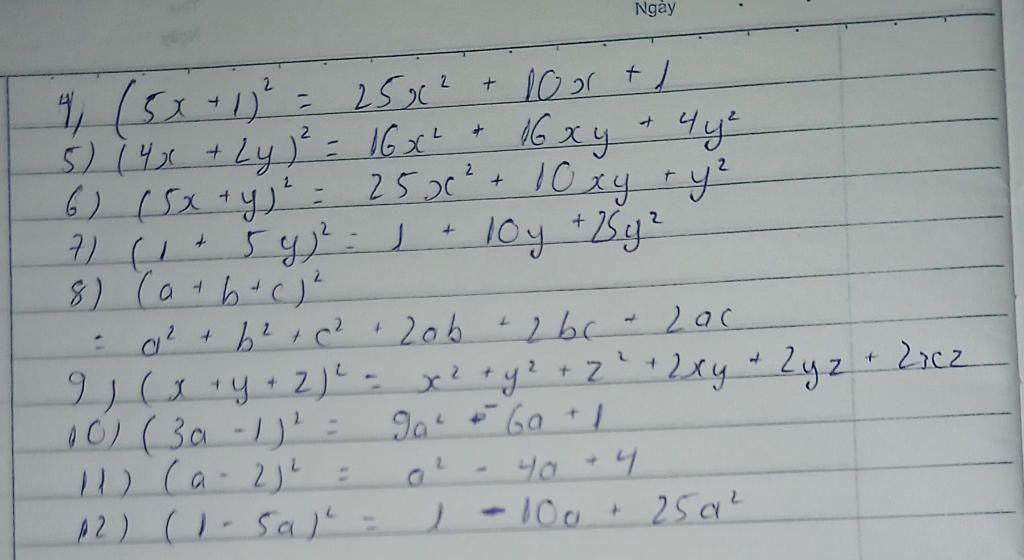 Ngày
4) (5x + 1)² = 25x² + 10x + 1
5) (4x + 2y)² = 16x² + 16xy + 4y²
6) (5x + y)² = 25x² + 10xy + y²
7) (1 + 5y)² = 1 + 10y + 25y²
8) (a + b + c)²
= a² + b² + c² + 2ab + 2bc + 2ac
9) (x + y + z)² = x² + y² + z² + 2xy + 2yz + 2xz
10) (3a - 1)² = 9a² - 6a + 1
11) (a - 2)² = a² - 4a + 4
12) (1 - 5a)² = 1 - 10a + 25a²